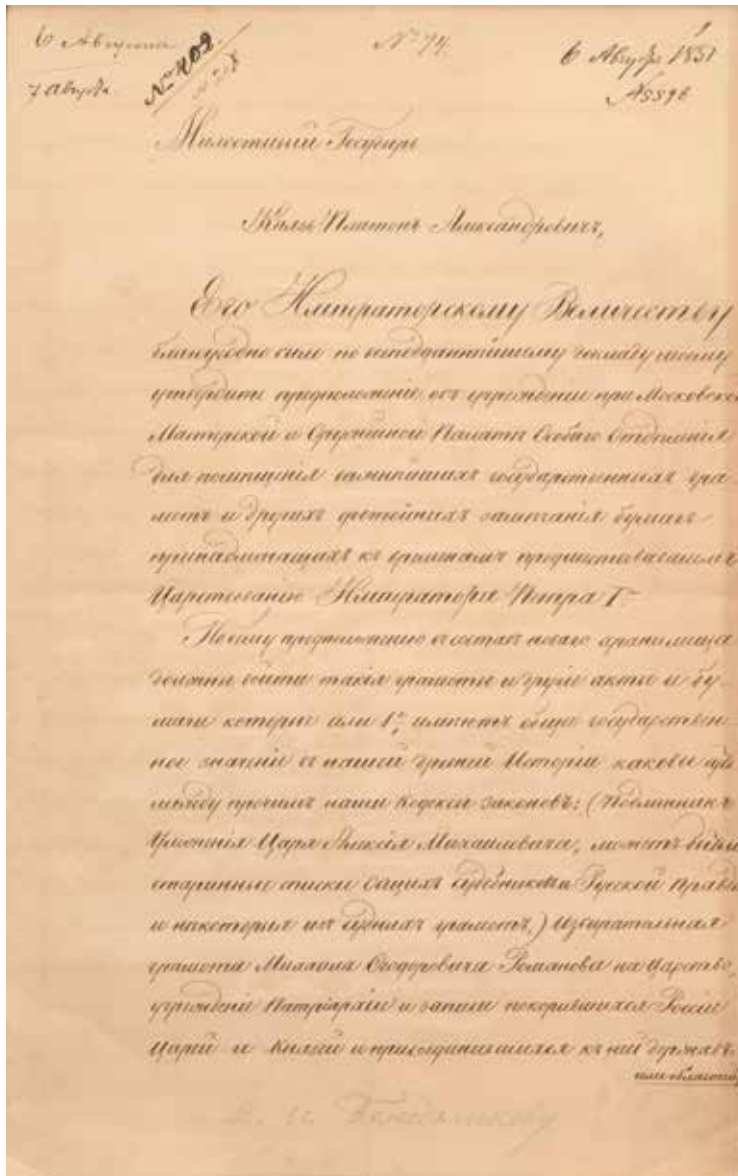 6 Августа
7 Августа
№ 402.
№ 74.
6 Августа 1851
Милостивый Государь
Князь Платонъ Александровичъ,
Его Императорскому Величеству
благоугодно было по всеподданнѣйшему докладу моему
утвердить предположеніе объ учрежденіи при Московской
Мастерской и Оружейной Палатѣ Особаго Отдѣленія
для помѣщенія важнѣйшихъ государственныхъ гра-
мотъ и другихъ достойныхъ замѣчанія бумагъ
принадлежащихъ къ временамъ предшествовавшимъ
Царствованію Императора Петра I го
По сему предположенію въ составъ новаго хранилища
должны войти такія грамоты и другіе акты и бу-
маги которые или 1е, имѣютъ обще государствен-
ное значеніе въ нашей древней Исторіи каковы
между прочимъ наши Кодексы законовъ: (Подлинникъ
Уложенія Царя Алексѣя Михаиловича, можетъ быть
старинные списки Русской Правды
и некоторыя изъ грамотъ,) Избирательная
грамота Михаила Ѳеодоровича Романова на Царство,
учрежденіе Патріархіи и записи покорившихся Россіи
Царей и Князей и присоединившихся къ ней державъ
или областей